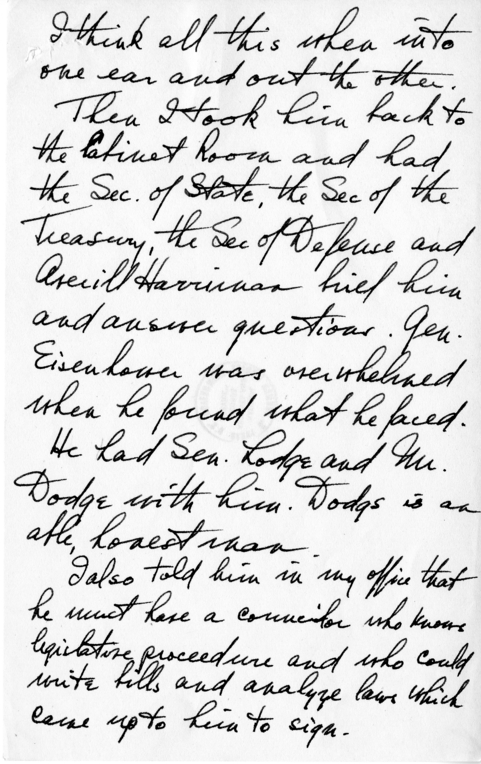 I think all this when into
one ear and out the other.
Then I took him back to
the Cabinet Room and had
the Sec. of State, the Sec of the
Treasury, the Sec of Defense and
Averill Harriman brief him
and answer questions. Gen.
Eisenhower was overwhelmed
when he found what he faced.
He had Sen. Lodge and Mr.
Dodge with him. Dodgs is an
able, honest man.
I also told him in my office that
he must have a councilor who knows
legislative proceedure and who could
write bills and analyze laws which
came up to him to sign.